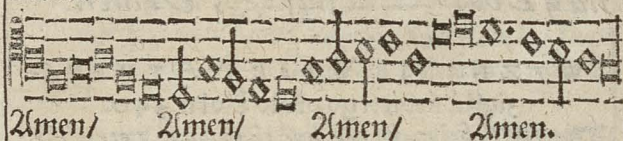 Amen/ Amen/ Amen/ Amen.